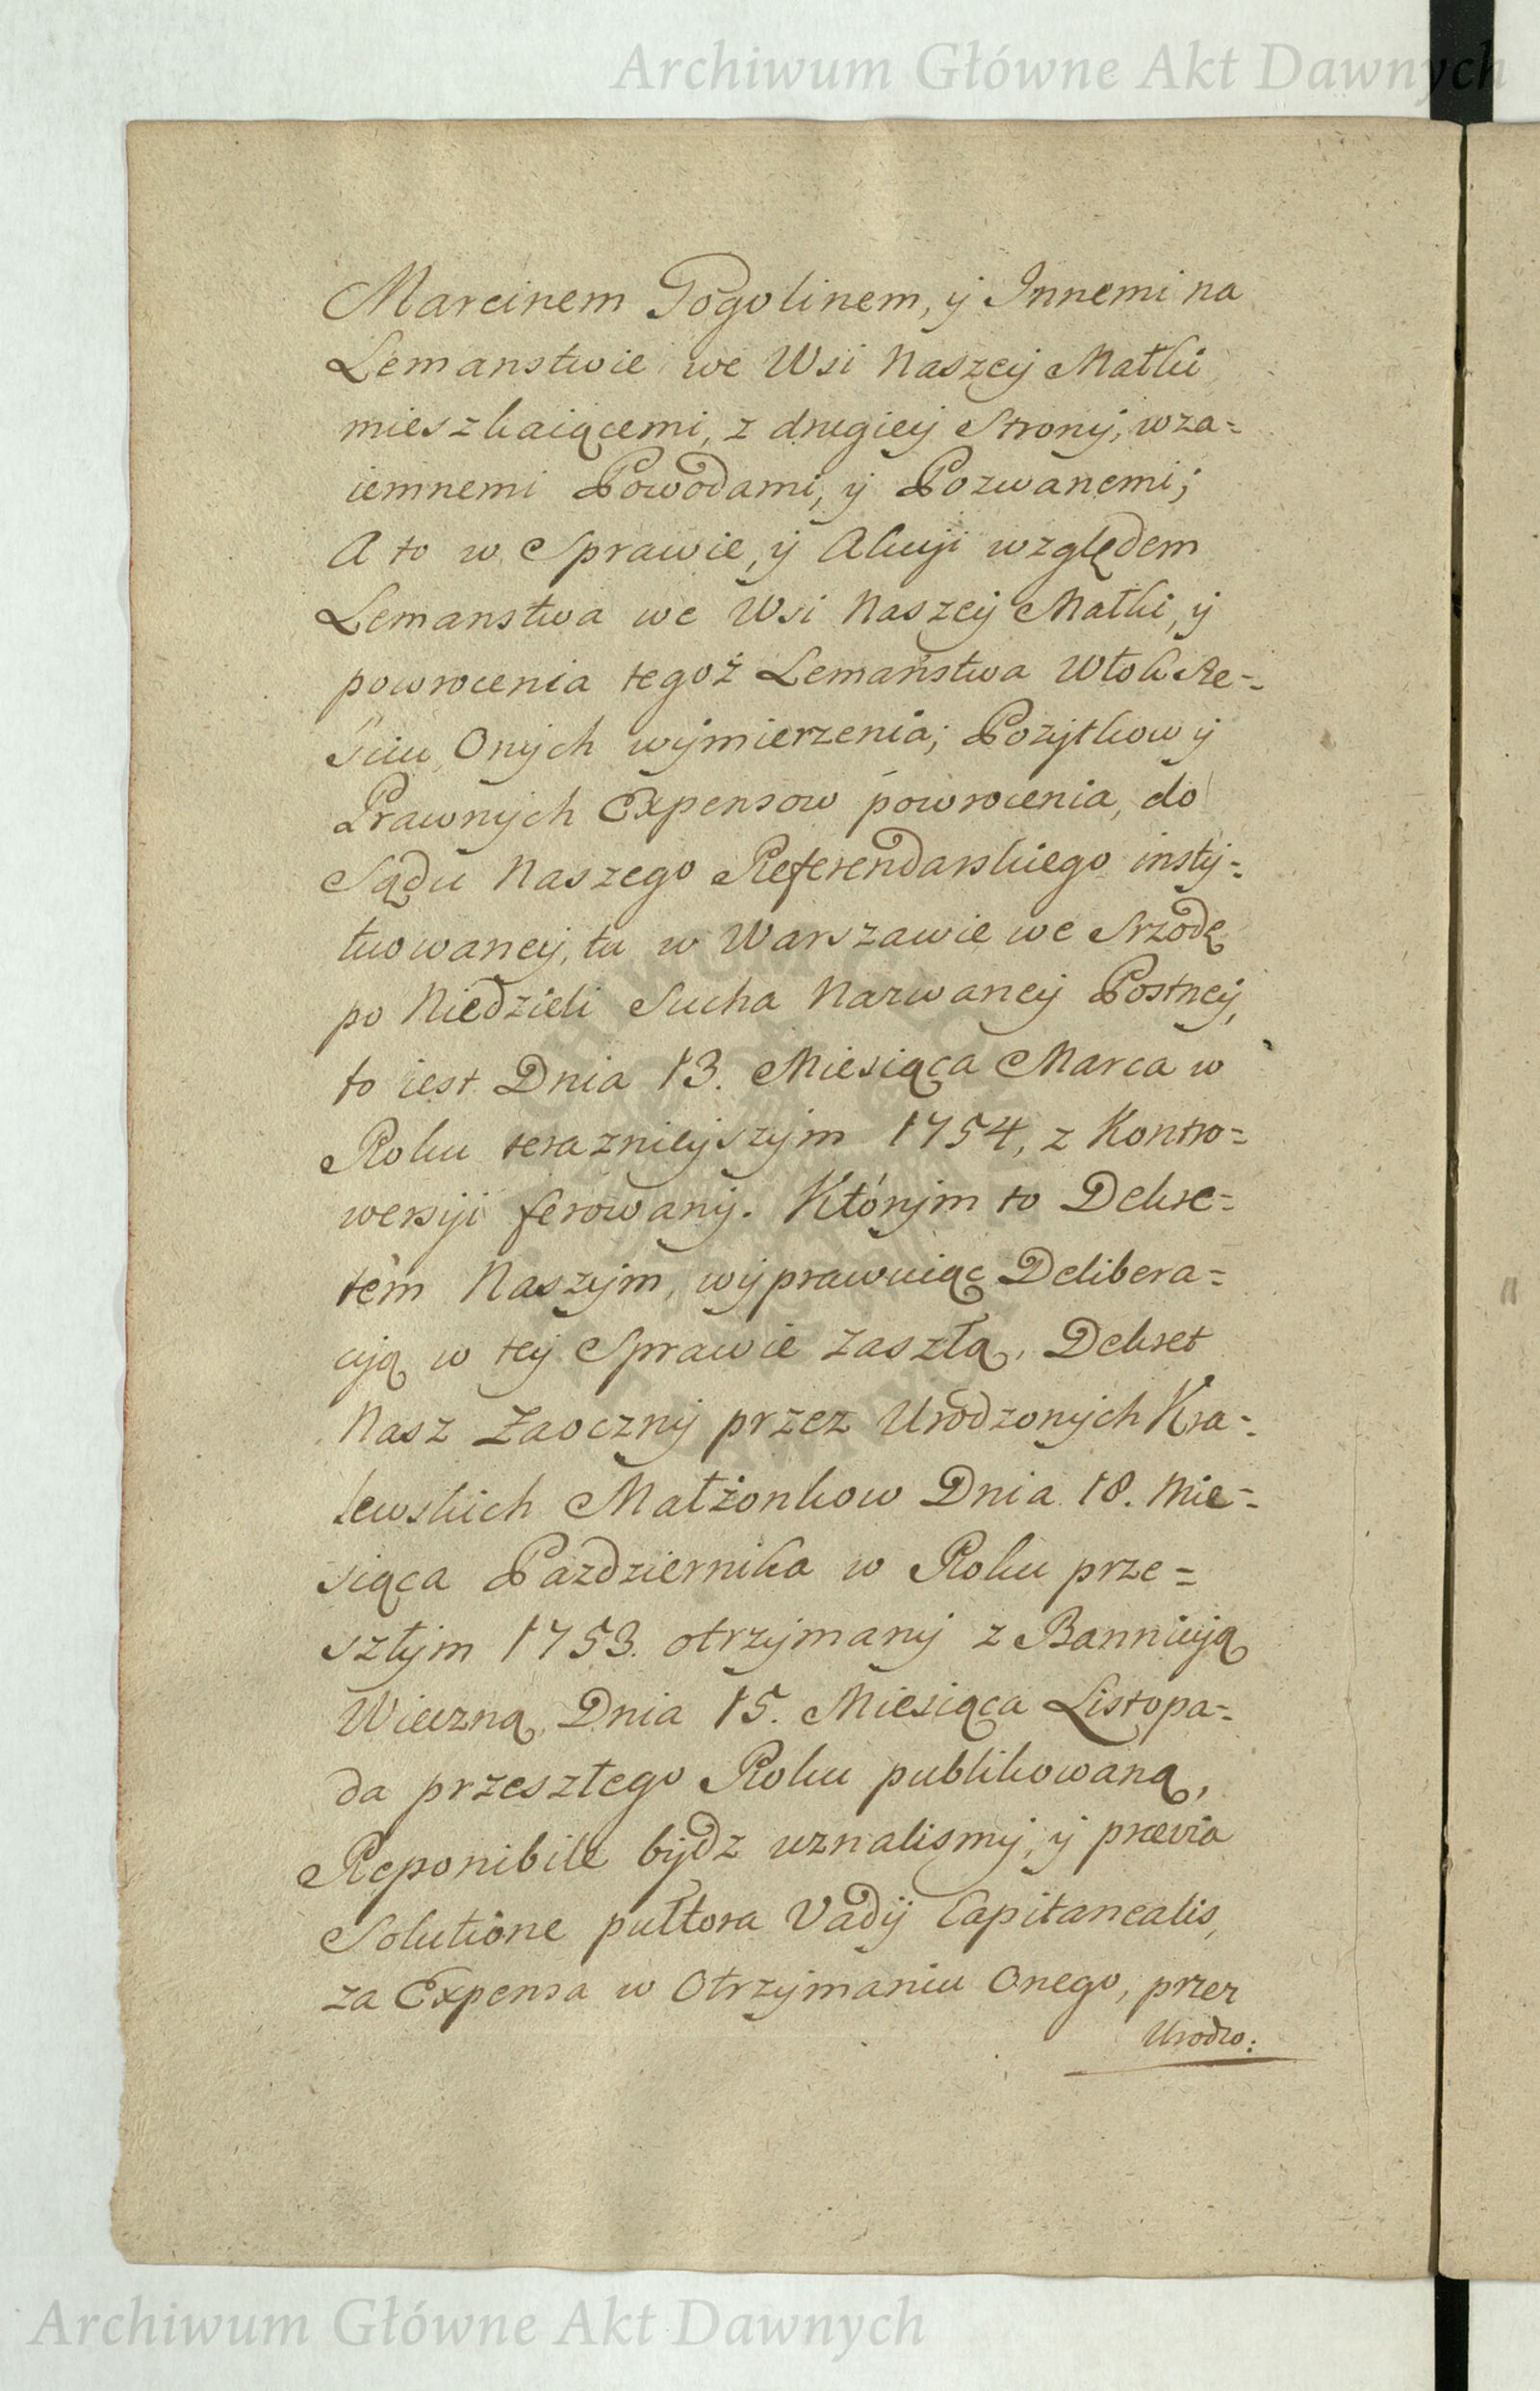 Archiwum Główne Akt Dawnych
Marcinem Gogolinem, y Innemi na
Lemanstwie we Wsi Naszey Małki
mieszkaiącemi, z drugiey Strony, wza=
iemnemi Powodami, y Pozwanemi;
A to w Sprawie, y Akcyi względem
Lemanstwa we Wsi Naszey Małki, y
powrocenia tegoż Lemaństwa Włok
Onych wymierzenia; Pozytkow y
Prawnych Expensow powrocenia, do
Sądu Naszego Referendarskiego insty=
tuowaney, tu w Warszawie we Srzodę
po Niedzieli Sucha Nazwaney Postney,
to iest Dnia 13. Miesiąca Marca w
Roku terazniejszym 1754, z Kontro=
wersyi ferowany. Którym to Dekre=
tem Naszym, wyprawuiąc Delibera=
cyą w tey Sprawie zaszłą, Dekret
Nasz Zaoczny przez Urodzonych Kra=
lewskich Małżonkow Dnia 18. Mie=
siąca Pazdziernika w Roku prze=
szłym 1753. otrzymany z Bannicyą
Wieczną, Dnia 15. Miesiąca Listopa=
da przeszłego Roku publikowaną,
Reponibile bydz uznalismy, y prævia
Solutione pułtora Vadij Capitanealis,
za Expensa w Otrzymaniu Onego, przez
Urodzo:
Archiwum Główne Akt Dawnych